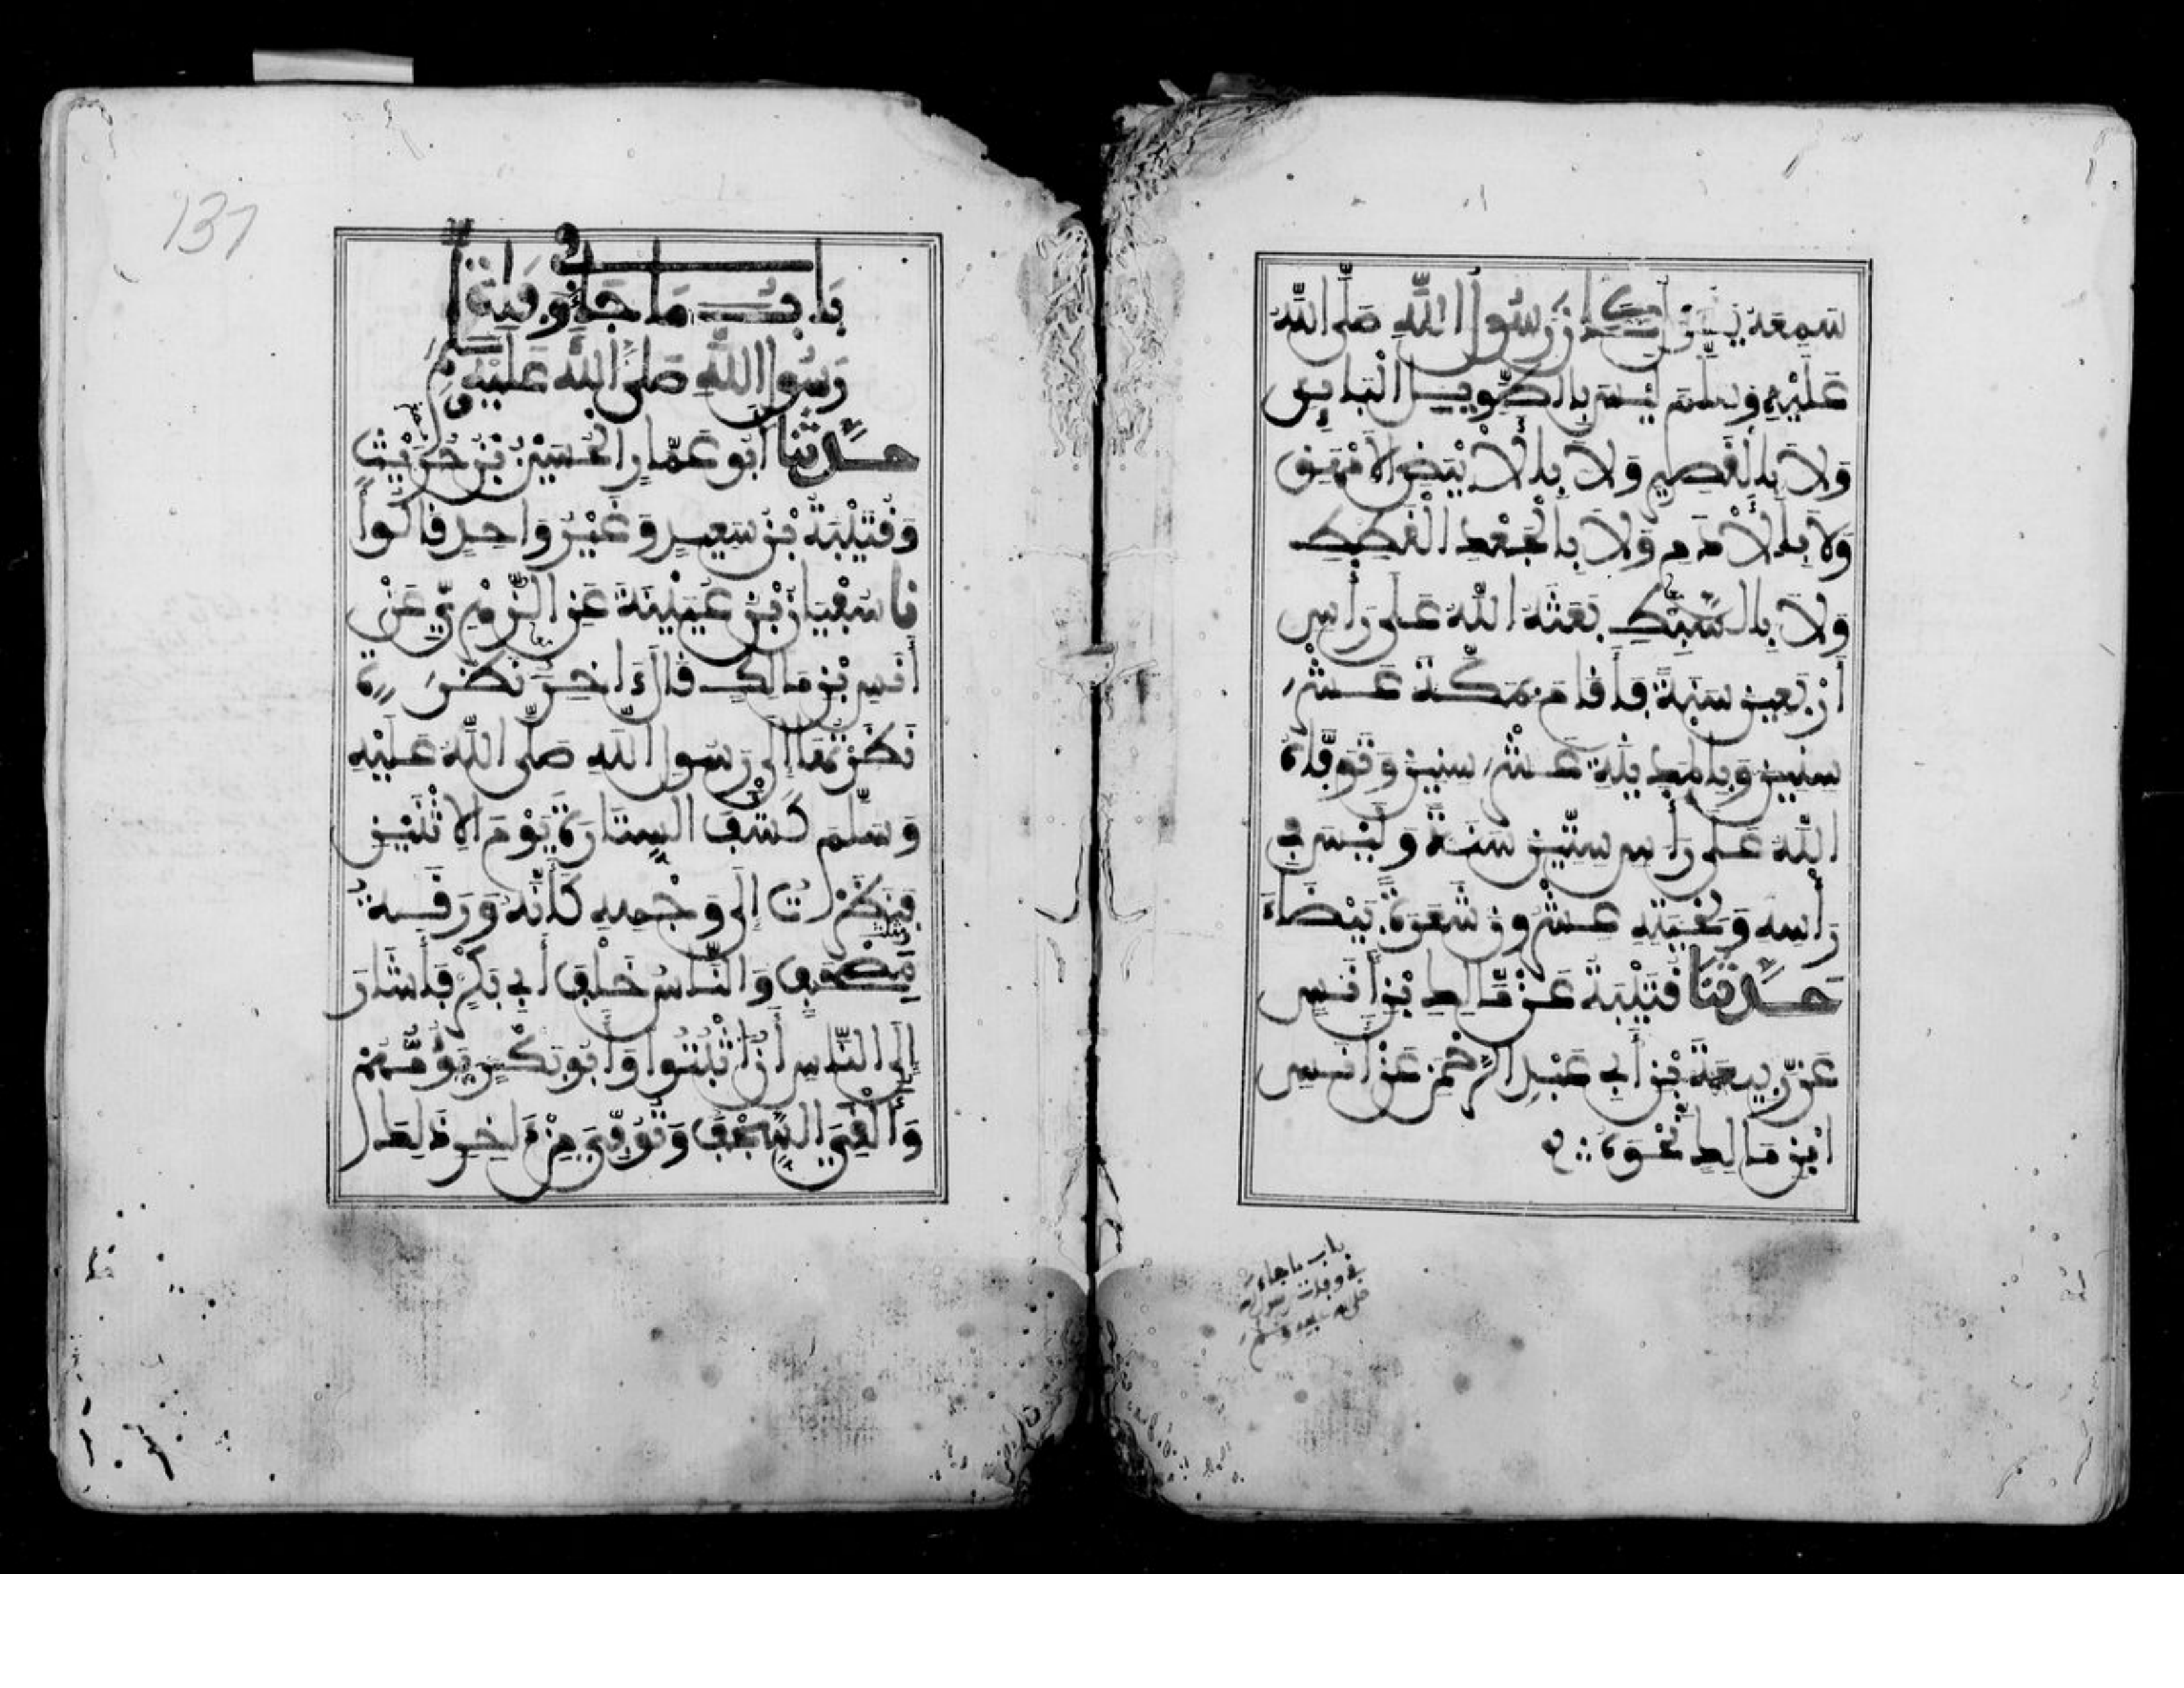 سَمِعَهُ يَقُولُ كَانَ رَسُولُ اللَّهِ صَلَّى اللَّهُ
عَلَيْهِ وَسَلَّمَ لَيْسَ بِالطَّوِيلِ الْبَائِنِ
وَلَا بِالْقَصِيرِ وَلَا بِالْأَبْيَضِ الْأَمْهَقِ
وَلَا بِالْأَدَمِ وَلَا بِالْجَعْدِ الْقَطِطِ
وَلَا بِالسَّبْطِ بَعَثَهُ اللَّهُ عَلَى رَأْسِ
أَرْبَعِينَ سَنَةً فَأَقَامَ بِمَكَّةَ عَشْرَ
سِنِينَ وَبِالْمَدِينَةِ عَشْرَ سِنِينَ وَتَوَفَّاهُ
اللَّهُ عَلَى رَأْسِ سِتِّينَ سَنَةً وَلَيْسَ فِي
رَأْسِهِ وَلِحْيَتِهِ عِشْرُونَ شَعَرَةً بَيْضَاءَ
حَدَّثَنَا قُتَيْبَةُ عَنْ مَالِكِ بْنِ أَنَسٍ
عَنْ رَبِيعَةَ بْنِ أَبِي عَبْدِ الرَّحْمَنِ عَنْ أَنَسِ
ابْنِ مَالِكٍ نَحْوَهُ
باب ما جاء
في وفات رسول
صلى عليه وسلم
137
بَابُ مَا جَاءَ فِي وَفَاةِ
رَسُولِ اللَّهِ صَلَّى اللَّهُ عَلَيْهِ وَسَلَّمَ
حَدَّثَنَا أَبُو عَمَّارٍ الْحُسَيْنُ بْنُ حُرَيْثٍ
وَقُتَيْبَةُ بْنُ سَعِيدٍ وَغَيْرُ وَاحِدٍ قَالُوا
نا سُفْيَانُ بْنُ عُيَيْنَةَ عَنِ الزُّهْرِيِّ عَنْ
أَنَسِ بْنِ مَالِكٍ قَالَ ءَاخِرُ نَظْرَةٍ
نَظَرْتُهَا إِلَى رَسُولِ اللَّهِ صَلَّى اللَّهُ عَلَيْهِ
وَسَلَّمَ كَشْفُ السِّتَارَةِ يَوْمَ الِاثْنَيْنِ
فَنَظَرْتُ إِلَى وَجْهِهِ كَأَنَّهُ وَرَقَةُ
مُصْحَفٍ وَالنَّاسُ خَلْفَ أَبِي بَكْرٍ فَأَشَارَ
إِلَى النَّاسِ أَنِ اثْبُتُوا وَأَبُو بَكْرٍ يَؤُمُّهُمْ
وَأَلْقَى السَّجْفَ وَتُوُفِّيَ مِنْ ءَاخِرِ ذَلِكَ